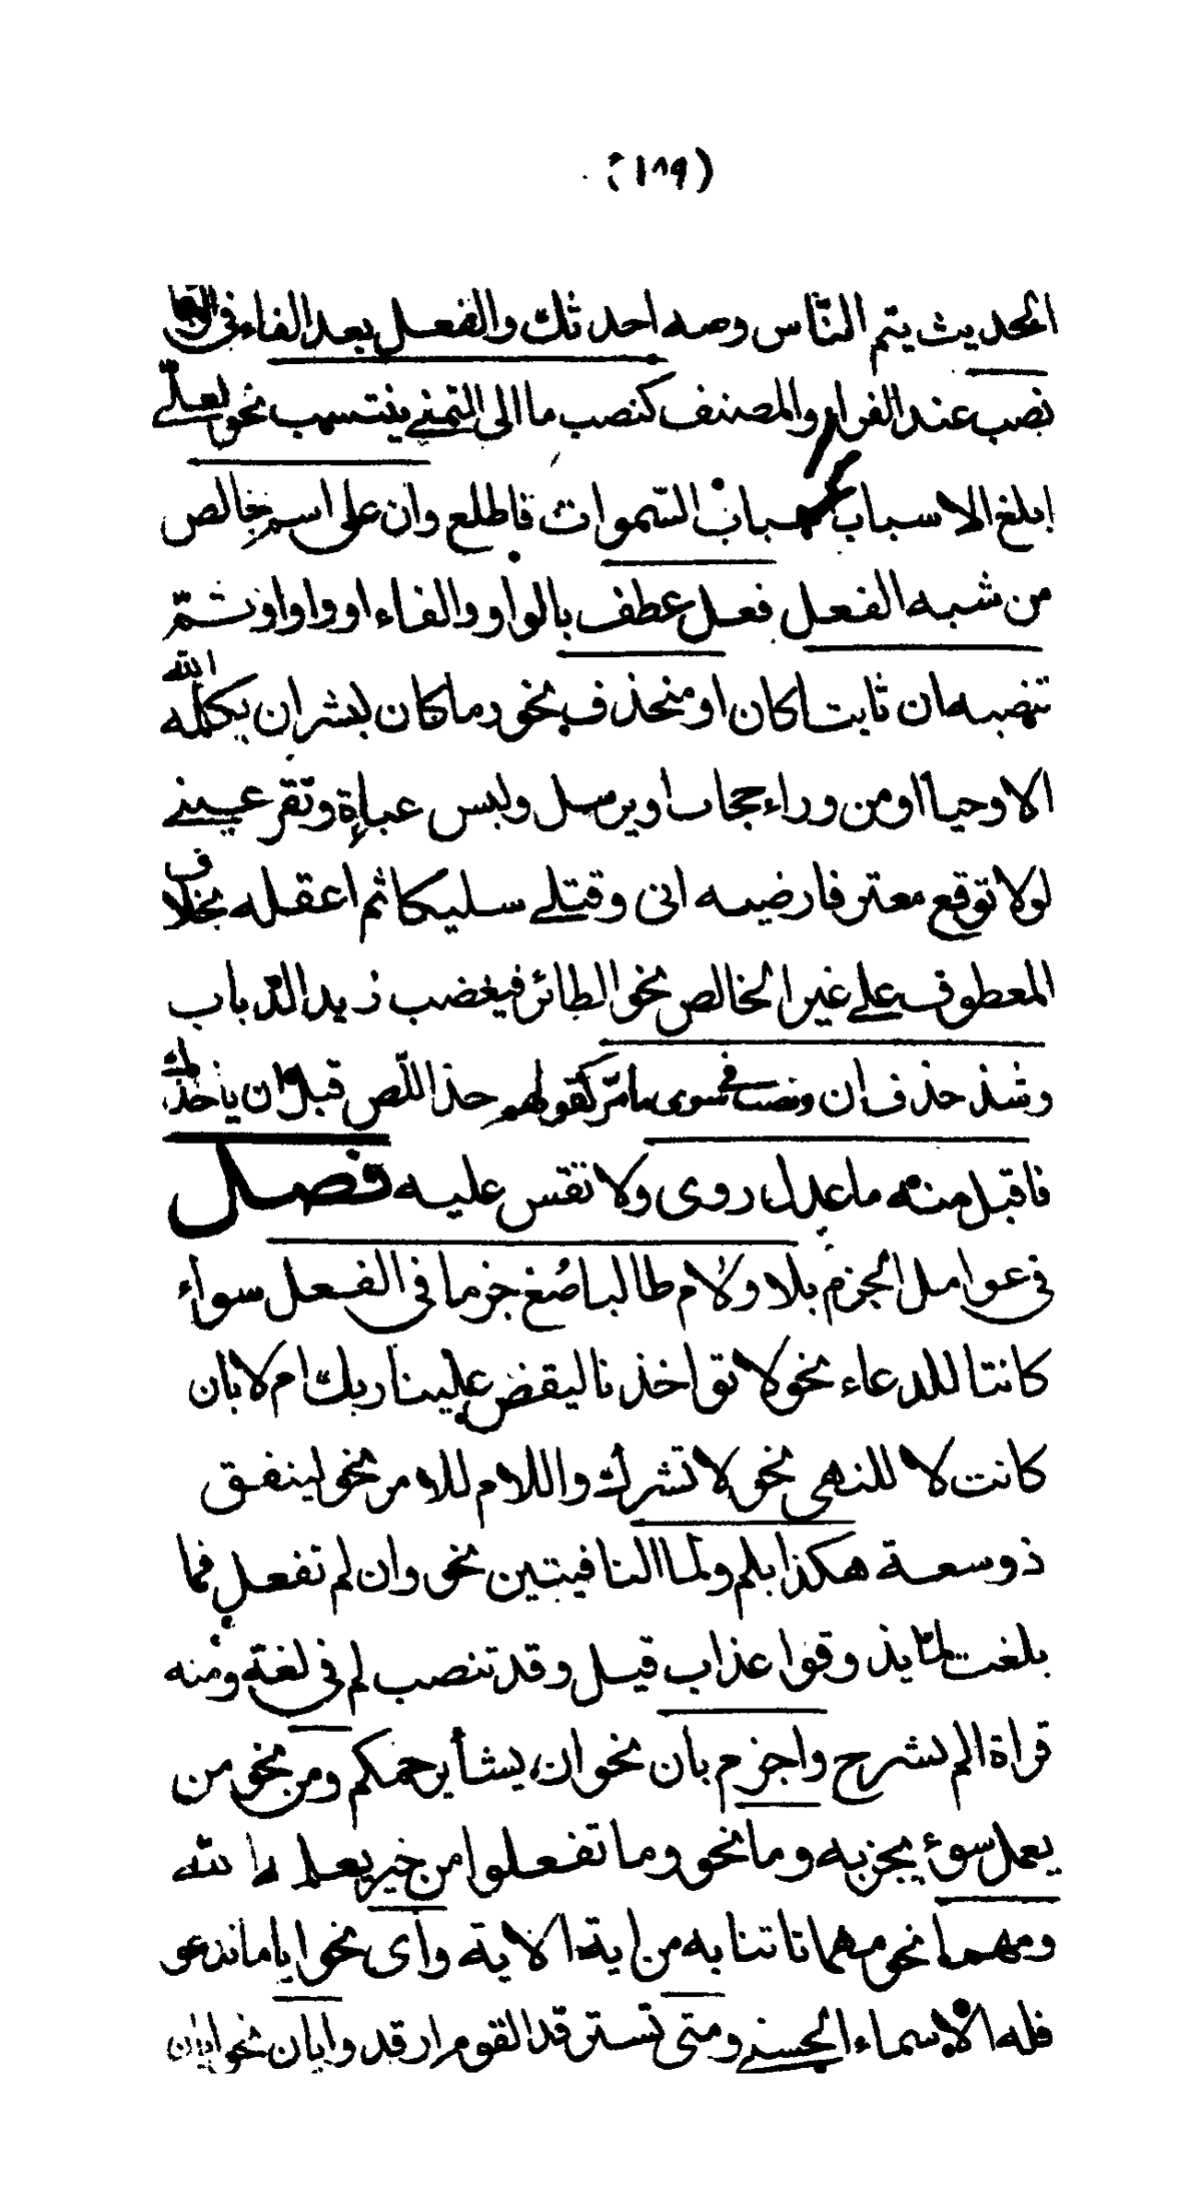 (١٨٩)
الحديث يتم الناس وصه احدثك والفعل بعد الفاء فى الرجا
نصب عند الفراء والمصنف كنصب ما الى التمنى ينتسب نحو لعلى
ابلغ الاسباب اسباب السموات فاطلع وان على اسم خالص
من شبه الفعل فعل عطف بالواو والفاء او واو او ثمّ
تنصبه ان ثابتا كان او منحذف نحو وما كان لبشر ان يكلمه الله
الا وحيا او من وراء حجاب او يرسل ولبس عباءة وتقر عينى
لولا توقع معتر فارضيه انى وقتلى سليكا ثم اعقله بخلاف
المعطوف على غير الخالص نحو الطائر فيغضب زيد الذباب
وشذ حذف ان ونصب فى سوى ما مرّ كقولهم خذ اللص قبل ان ياخذك
فاقبل منه ما عدل روى ولا تقس عليه فصل
فى عوامل الجزم بلا ولام طالبا ضع جزما فى الفعل سواء
كانتا للدعاء نحو لا تواخذنا ليقض علينا ربك ام لا بان
كانت لا للنهى نحو لا تشرك واللام للامر نحو لينفق
ذو سعة هكذا بلم ولما النافيتين نحو وان لم تفعل فما
بلغت لمّا يذوقوا عذاب قيل وقد تنصب لم فى لغة ومنه
قراة الم نشرح واجزم بان نحو ان يشأ يرحمكم ومن نحو من
يعمل سوء يجز به وما نحو وما تفعلوا من خير يعلمه الله
ومهما نحو مهما تاتنا به من اية الاية واى نحو ايا ما تدعو
فله الاسماء الحسنى ومتى تسترفد القوم ارفد وايان نحو ايان